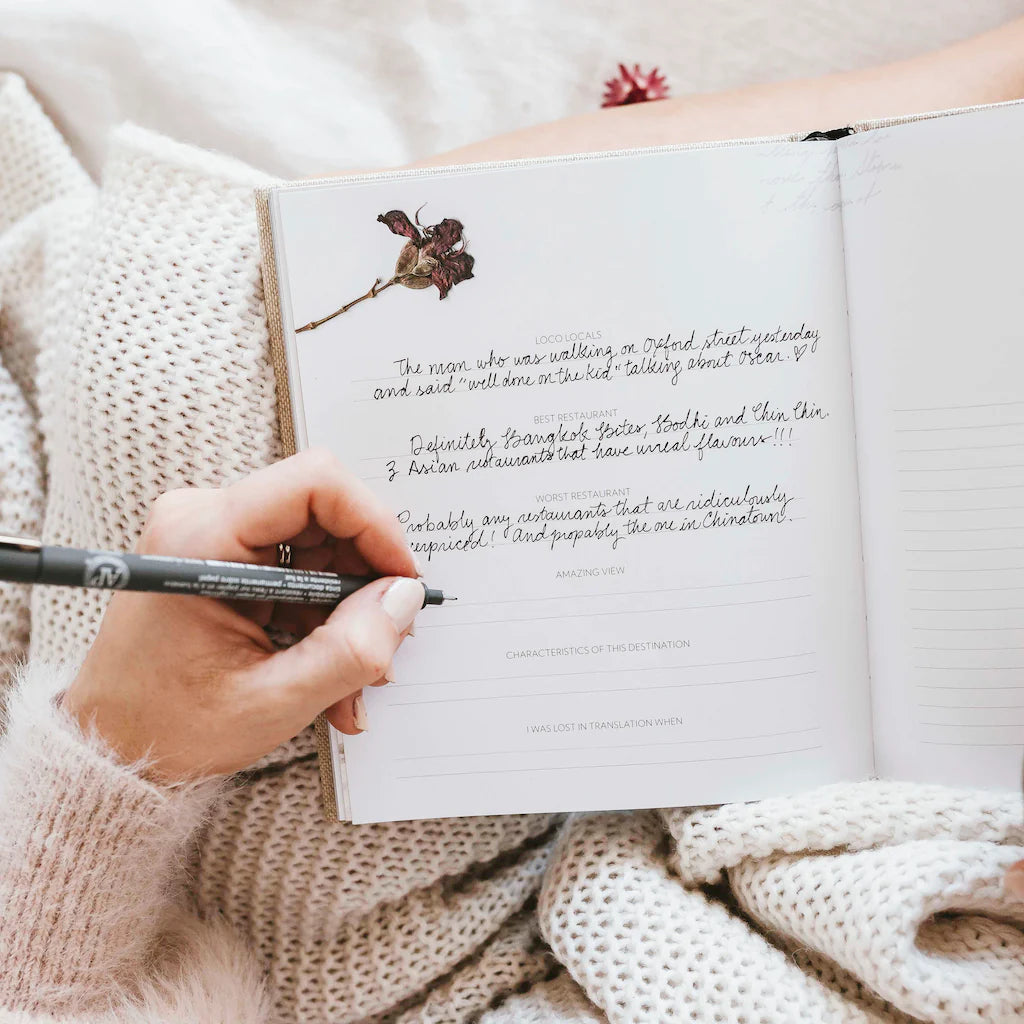 LOCO LOCALS
The man who was walking on Oxford street yesterday
and said "well done on the kid" talking about Oscar. ♡
BEST RESTAURANT
Definitely Bangkok Bites, Bodhi and Chin Chin.
3 Asian restaurants that have unreal flavours!!!
WORST RESTAURANT
Probably any restaurants that are ridiculously
erpriced! And propably the one in Chinatown.
AMAZING VIEW
CHARACTERISTICS OF THIS DESTINATION
I WAS LOST IN TRANSLATION WHEN